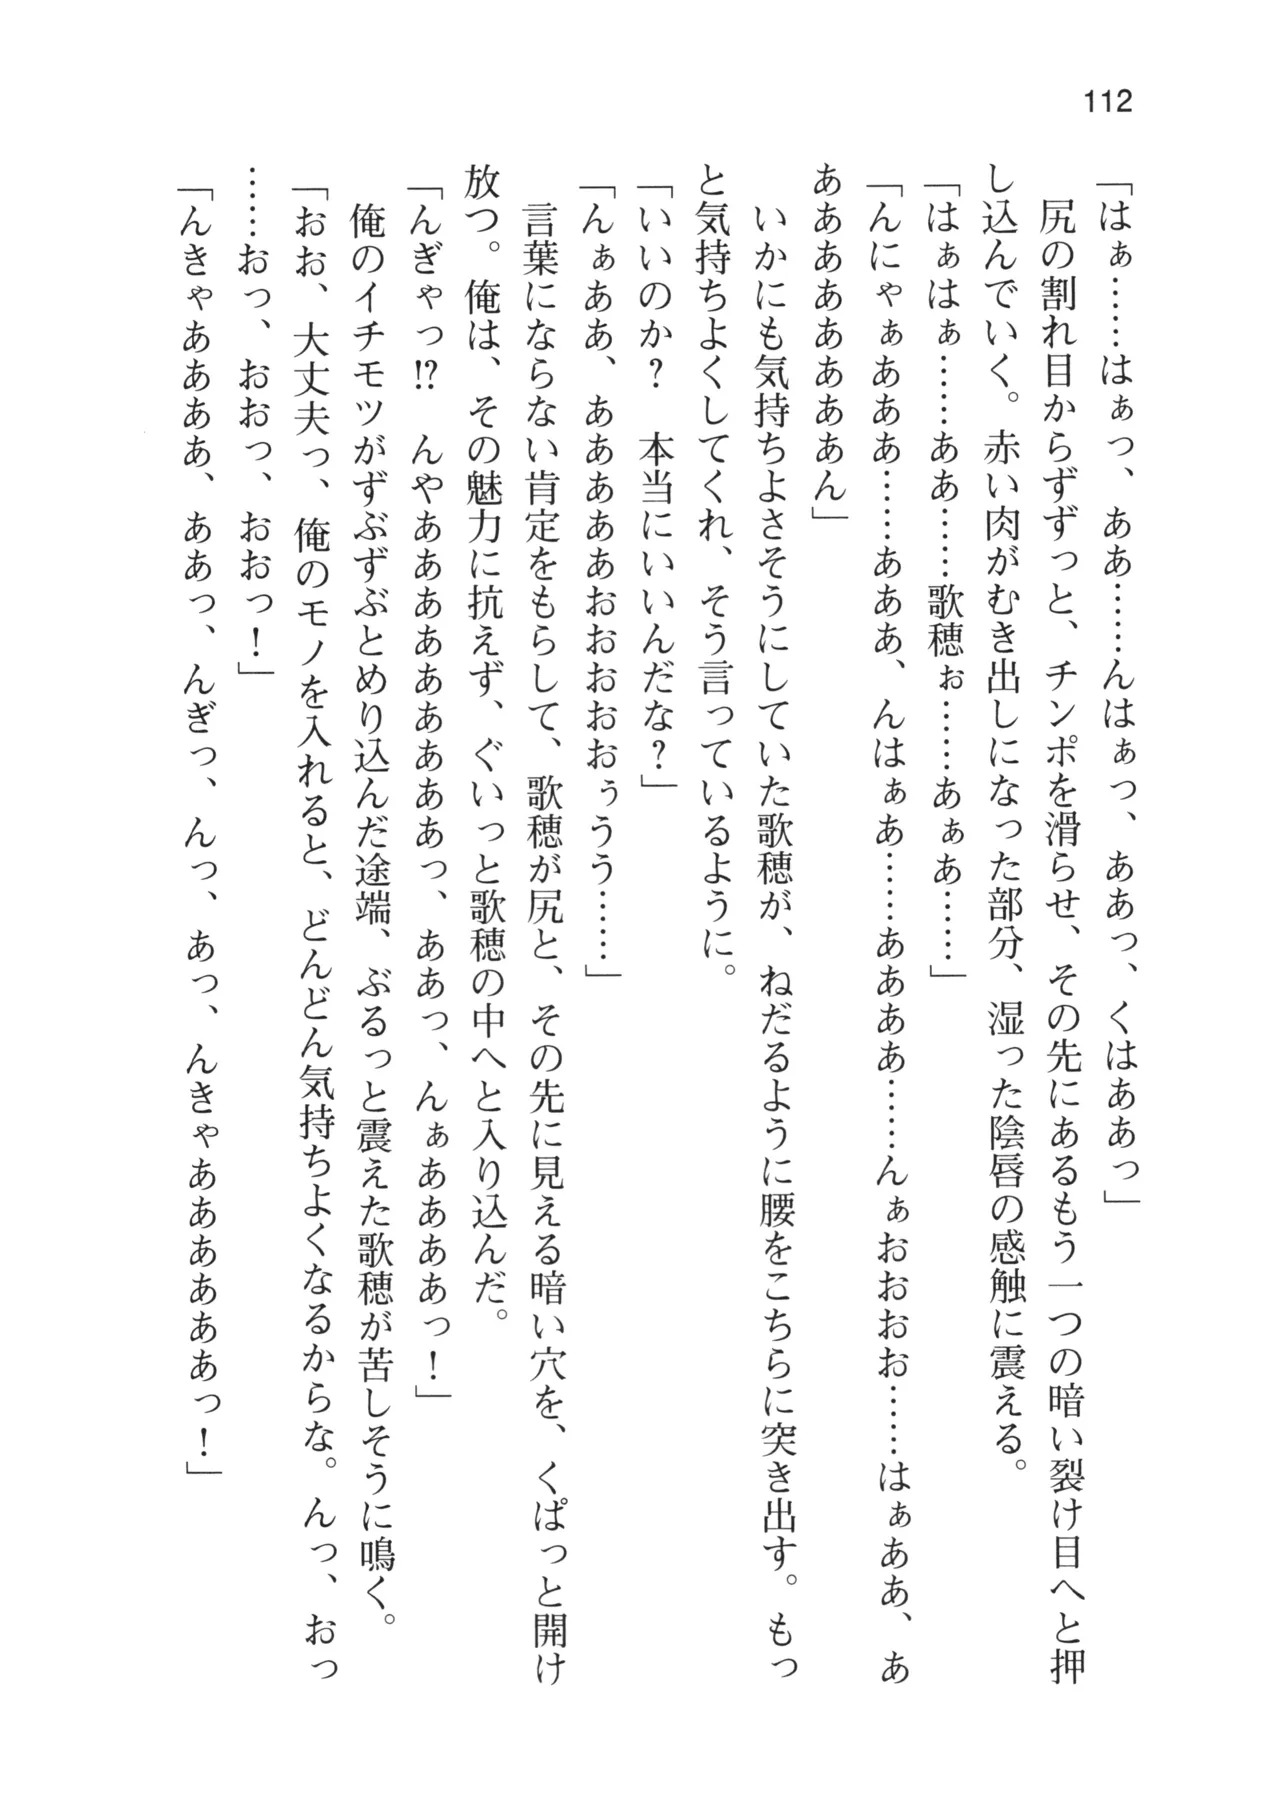 112
「はぁ……はぁっ、ああ……んはぁっ、ああっ、くはああっ」
尻の割れ目からずずっと、チンポを滑らせ、その先にあるもう一つの暗い裂け目へと押
し込んでいく。赤い肉がむき出しになった部分、湿った陰唇の感触に震える。
「はぁはぁ……ああ……歌穂ぉ……あぁあ……」
「んにゃぁあああ……あああ、んはぁあ……ああああ……んぁおおおお……はぁああ、あ
ああああああああん」
いかにも気持ちよさそうにしていた歌穂が、ねだるように腰をこちらに突き出す。もっ
と気持ちよくしてくれ、そう言っているように。
「いいのか？　本当にいいんだな？」
「んぁああ、あああああおおおおおぅうう……」
言葉にならない肯定をもらして、歌穂が尻と、その先に見える暗い穴を、くぱっと開け
放つ。俺は、その魅力に抗えず、ぐいっと歌穂の中へと入り込んだ。
「んぎゃっ!?　んやああああああああっ、ああっ、んぁああああっ！」
俺のイチモツがずぶずぶとめり込んだ途端、ぶるっと震えた歌穂が苦しそうに鳴く。
「おお、大丈夫っ、俺のモノを入れると、どんどん気持ちよくなるからな。んっ、おっ
……おっ、おおっ、おおっ！」
「んきゃああああ、ああっ、んぎっ、んっ、あっ、んきゃああああああっ！」